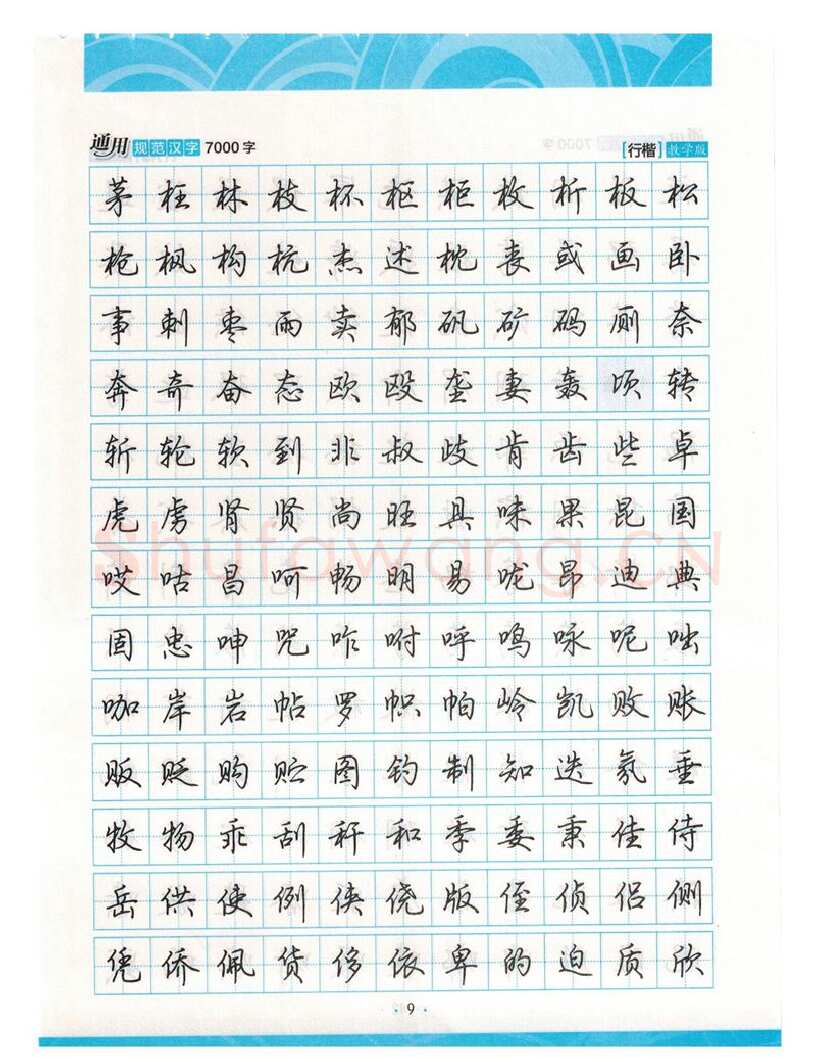 通用 规范汉字 7000字 [行楷] 教学版
茅 枉 林 枝 杯 枢 柜 枚 析 板 松
枪 枫 构 杭 杰 述 枕 丧 或 画 卧
事 刺 枣 雨 卖 郁 矾 矿 码 厕 奈
奔 奇 奋 态 欧 殴 垄 妻 轰 顷 转
斩 轮 软 到 非 叔 歧 肯 齿 些 卓
虎 虏 肾 贤 尚 旺 具 味 果 昆 国
哎 咕 昌 呵 畅 明 易 咙 昂 迪 典
固 忠 呻 咒 咋 咐 呼 鸣 咏 呢 咄
咖 岸 岩 帖 罗 帜 帕 岭 凯 败 账
贩 贬 购 贮 图 钓 制 知 迭 氛 垂
牧 物 乖 刮 秆 和 季 委 秉 佳 侍
岳 供 使 例 侠 侥 版 侄 侦 侣 侧
凭 侨 佩 货 侈 依 卑 的 迫 质 欣
Shufawang.CN
9